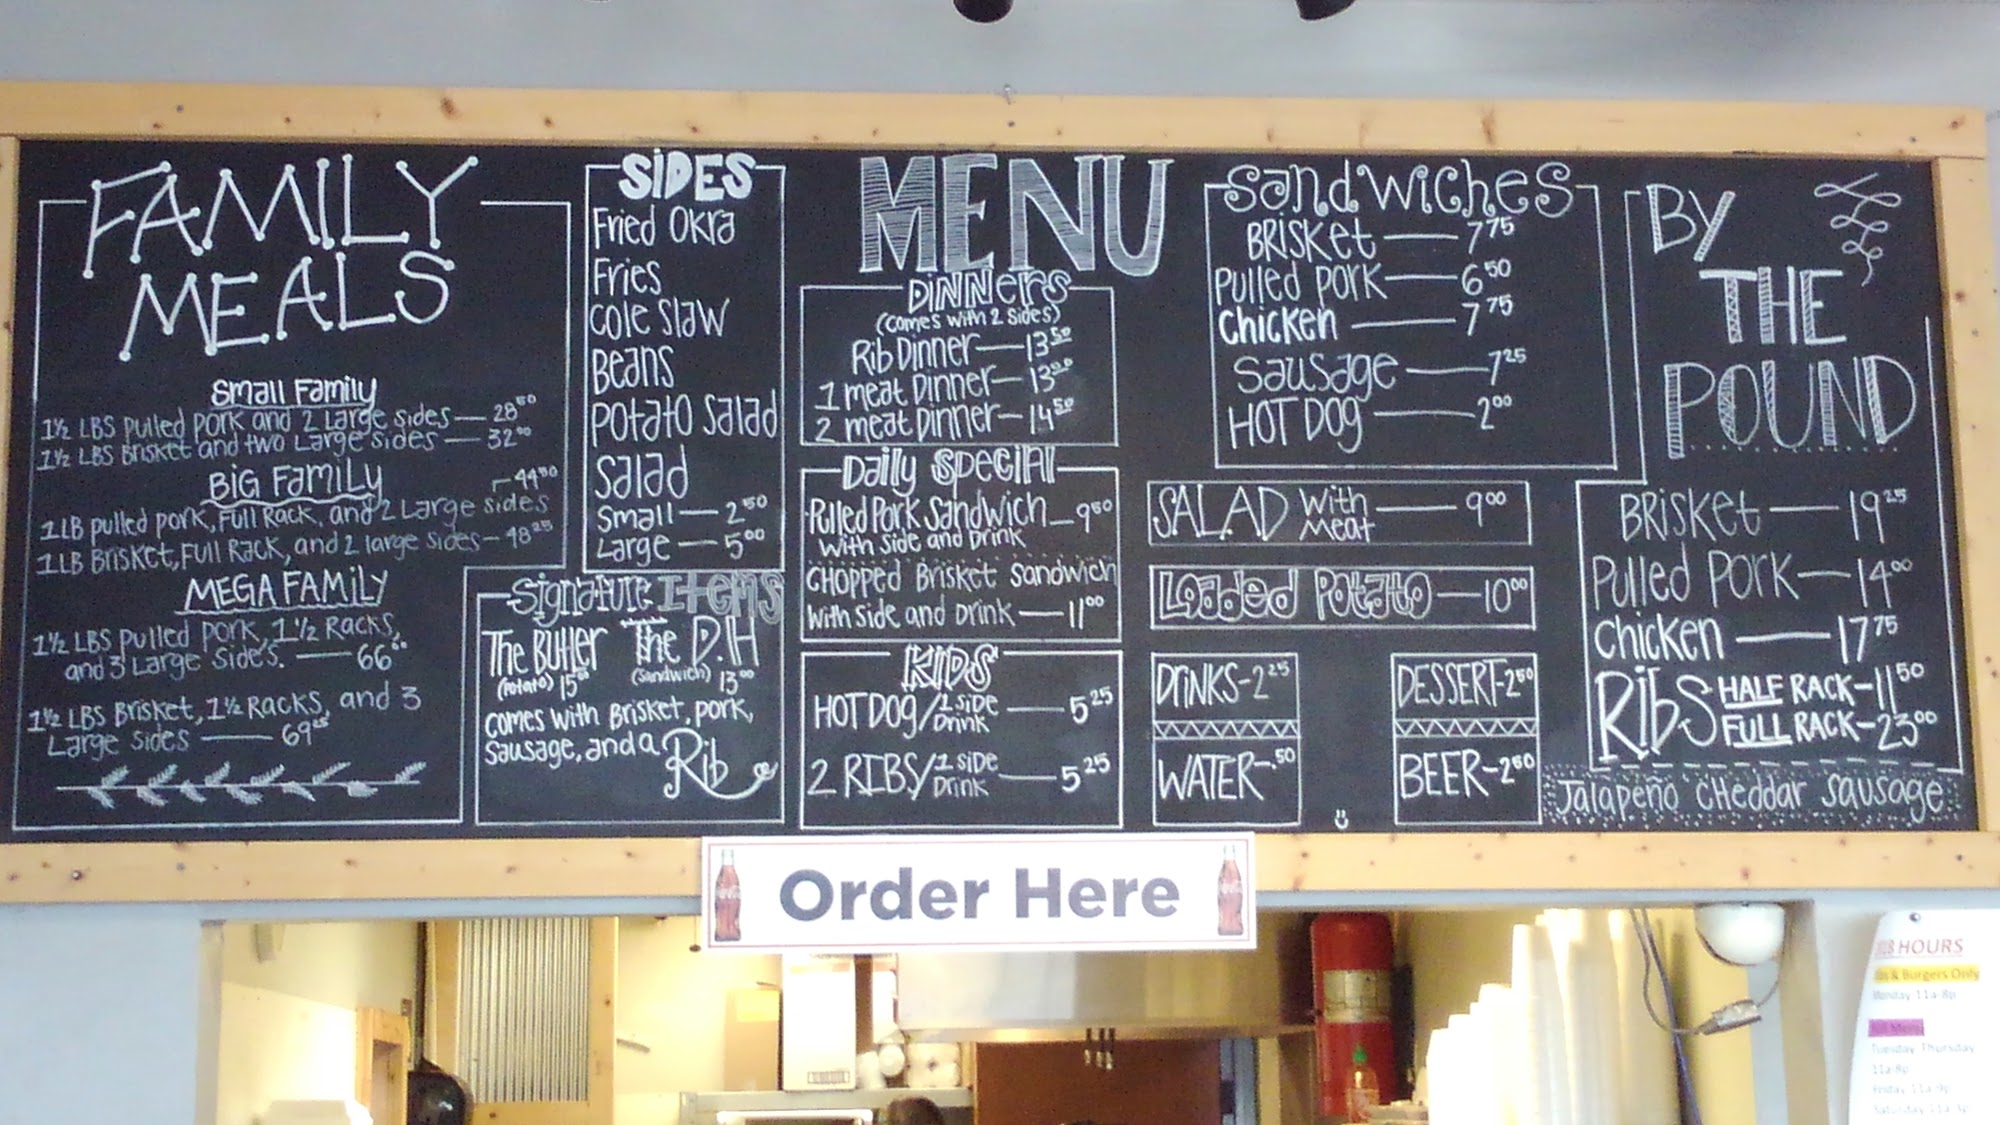 FAMILY
MEALS
Small Family
1½ LBS pulled pork and 2 Large sides — 28⁵⁰
1½ LBS Brisket and two Large sides — 32⁰⁰
BIG FAMILY
1 LB pulled pork, Full Rack, and 2 Large sides — 44⁵⁰
1 LB Brisket, Full Rack, and 2 large sides — 48²⁵
MEGA FAMILY
1½ LBS pulled pork, 1½ Racks,
and 3 Large Sides. — 66⁰⁰
1½ LBS Brisket, 1½ Racks, and 3
Large sides — 69²⁵
SIDES
Fried Okra
Fries
Cole Slaw
Beans
Potato Salad
Salad
Small — 2⁵⁰
Large — 5⁰⁰
Signature Items
The Butler
(Potato) 15⁰⁰
The D.H
(Sandwich) 13⁰⁰
Comes with Brisket, pork,
Sausage, and a Rib
MENU
Dinners
(Comes with 2 Sides)
Rib Dinner — 13⁵⁰
1 meat Dinner — 13⁰⁰
2 meat Dinner — 14⁵⁰
Daily Special
Pulled Pork Sandwich — 9⁵⁰
with Side and Drink
Chopped Brisket Sandwich
with Side and Drink — 11⁰⁰
KIDS
HOT DOG/1 side Drink — 5²⁵
2 RIBS/1 side Drink — 5²⁵
Sandwiches
Brisket — 7⁷⁵
Pulled Pork — 6⁵⁰
Chicken — 7⁷⁵
Sausage — 7²⁵
HOT DOG — 2⁰⁰
SALAD with Meat — 9⁰⁰
Loaded Potato — 10⁰⁰
DRINKS - 2²⁵
WATER - .50
DESSERT - 2⁵⁰
BEER - 2⁵⁰
BY
THE
POUND
Brisket — 19²⁵
Pulled Pork — 14⁰⁰
Chicken — 17⁷⁵
Ribs HALF RACK - 11⁵⁰
FULL RACK - 23⁰⁰
Jalapeño Cheddar Sausage
Order Here
HOURS
& Burgers Only
Monday 11a-8p
Full Menu
Tuesday-Thursday
11a-8p
Friday 11a-9p
Saturday 11a-3p